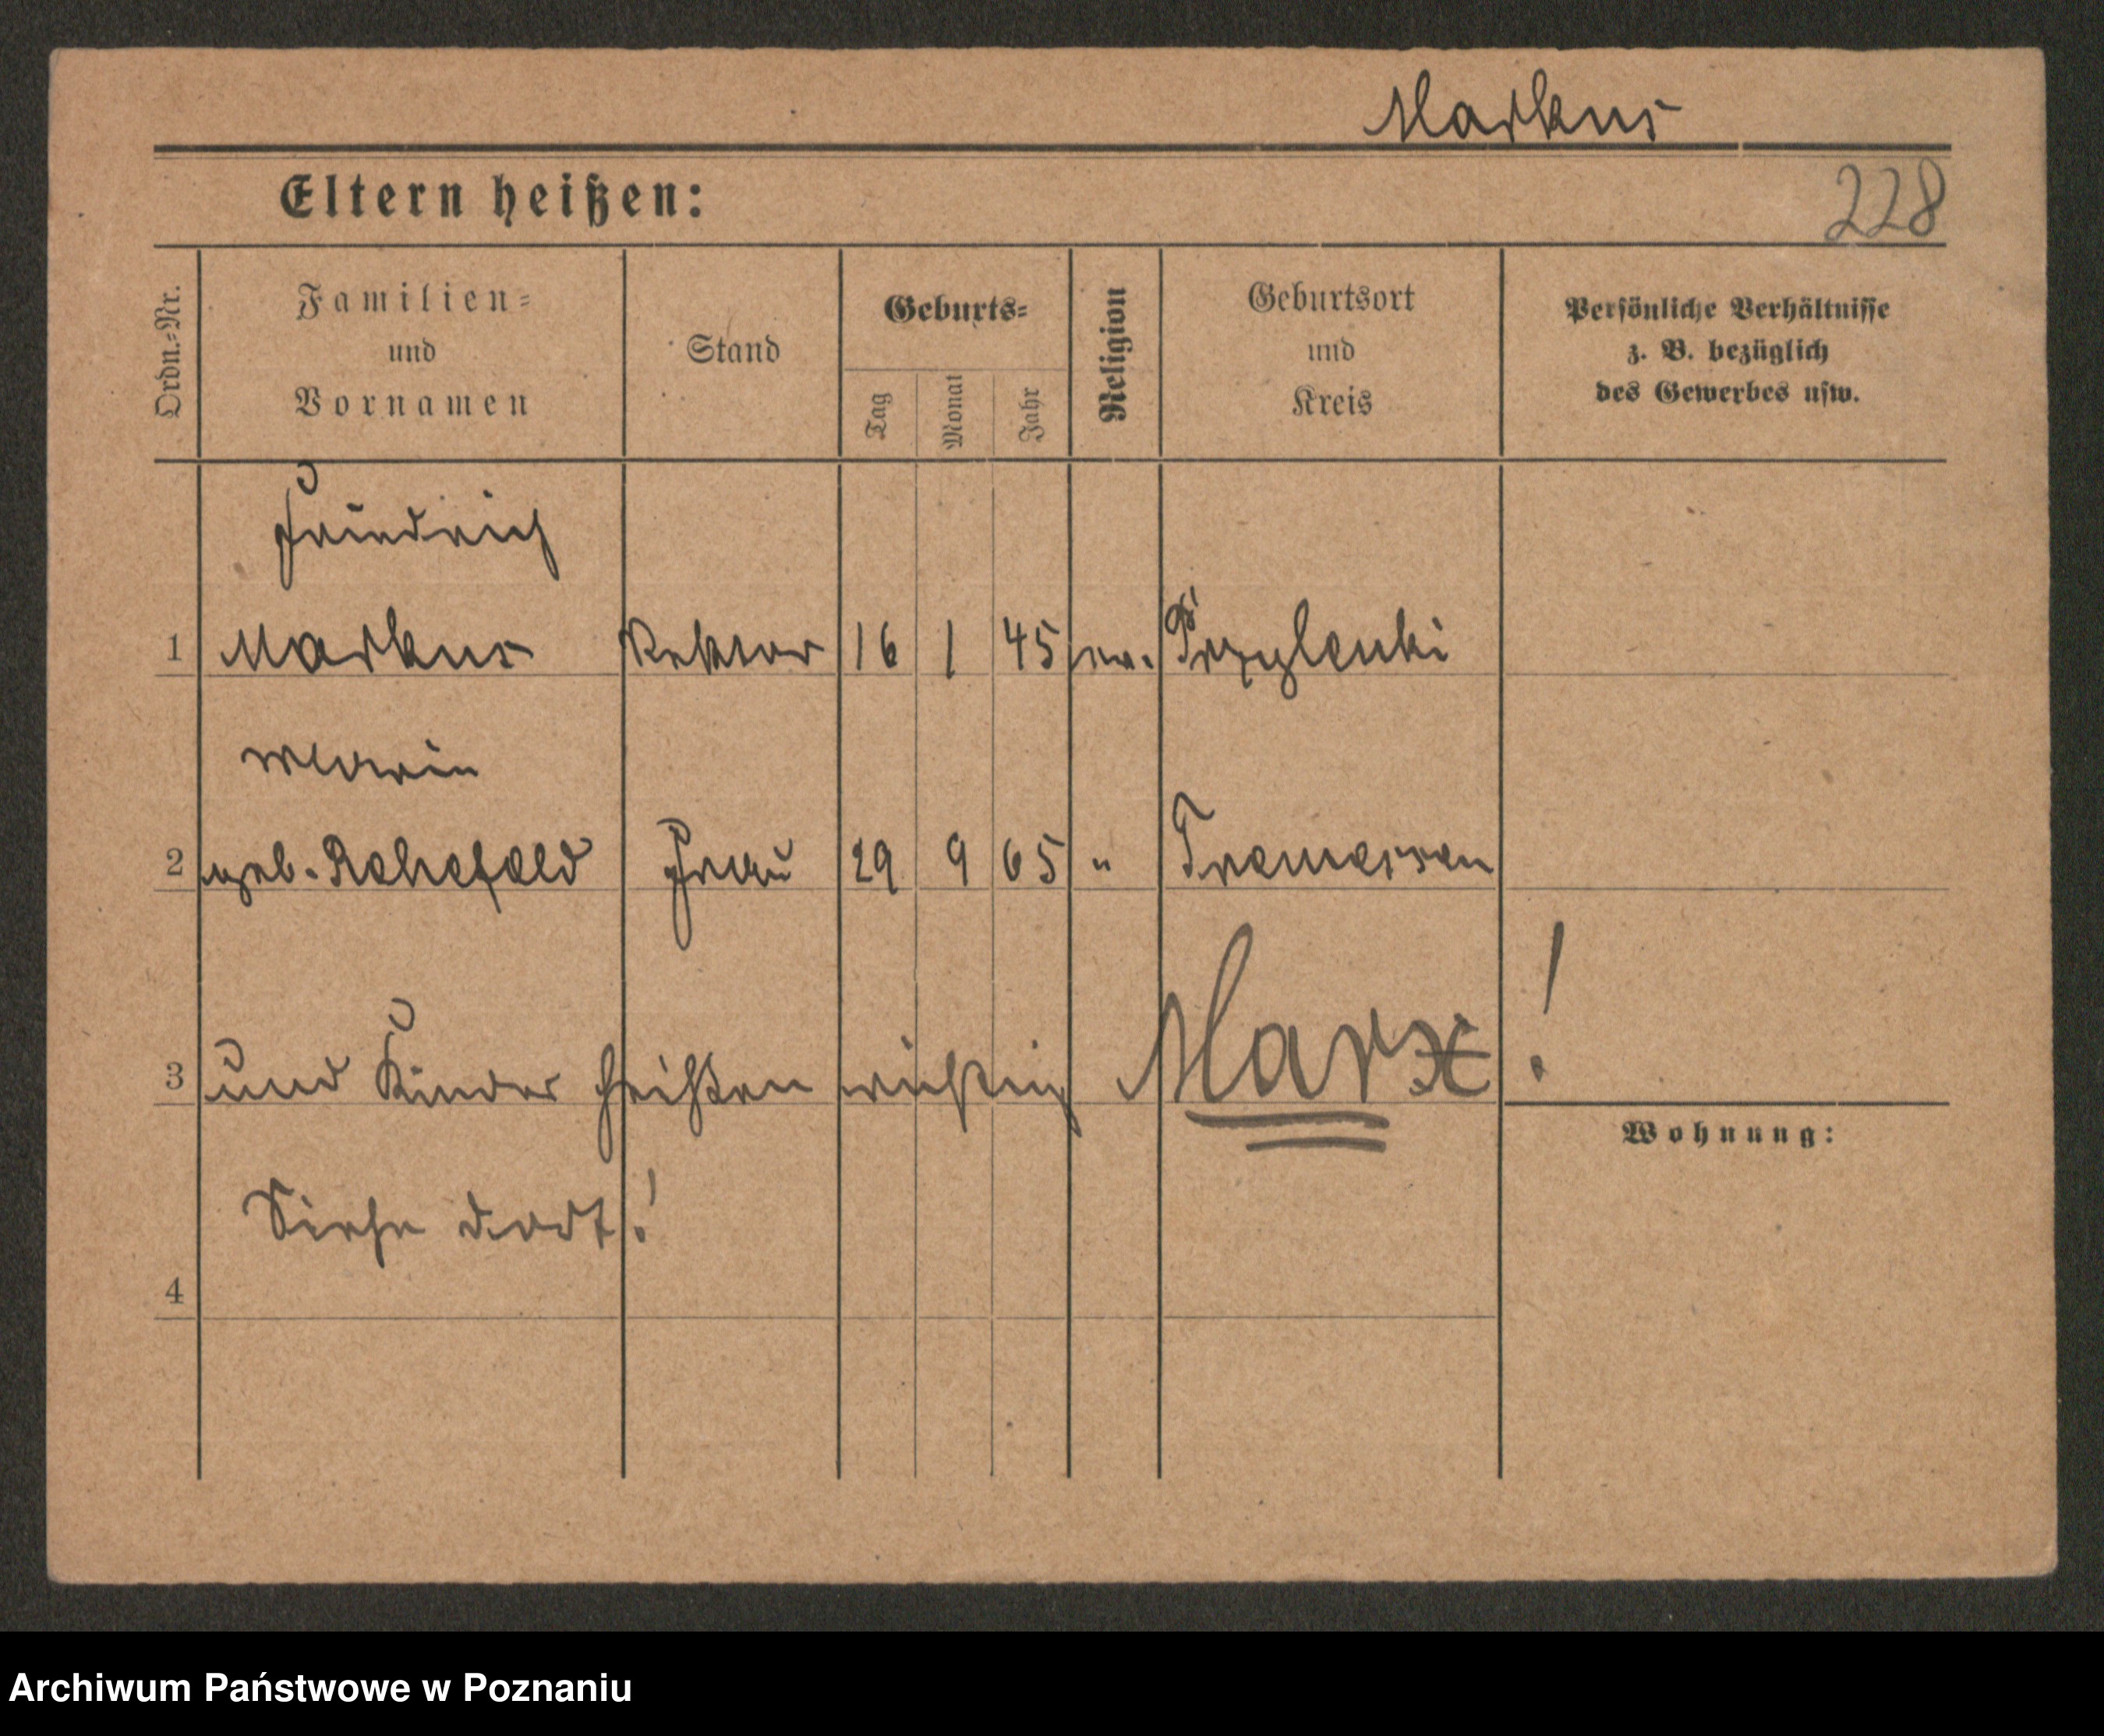 Markus
Eltern heißen:
228
Ordn.-Nr.
Familien-
und
Vornamen
Stand
Geburts-
Tag
Monat
Jahr
Religion
Geburtsort
und
Kreis
Persönliche Verhältnisse
z. B. bezüglich
des Gewerbes usw.
Friedrich
1 Markus Rektor 16 1 45 ev.
Marie
2 geb. Rehefeld Frau 29 9 65 " Tremessen
3 und Kinder heißen richtig Marx!
Wohnung:
Siehe dort!
4
Archiwum Państwowe w Poznaniu